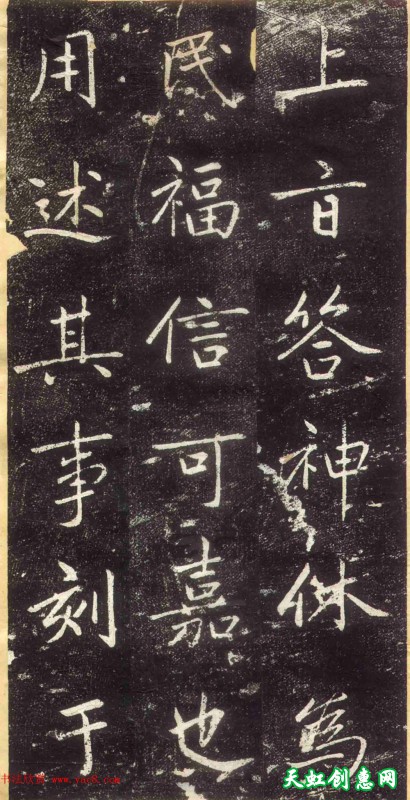 上旨答神休為
民福信可嘉也
用述其事刻于
天虹创惠网
书法欣赏 www.yac8.com